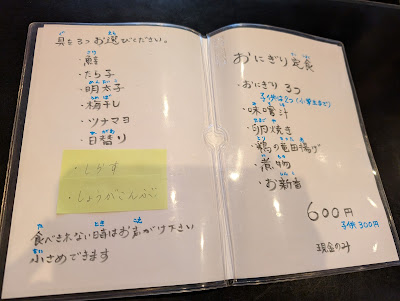 具を3つお選びください。
・鮭
・たら子
・明太子
・梅干し
・ツナマヨ
・日替り
・しらす
・しょうがこんぶ
食べきれない時はお声がけ下さい
小さめできます
おにぎり定食
・おにぎり 3つ
子供は2つ(小学生まで)
・味噌汁
・卵焼き
・鶏の竜田揚げ
・煮物
・お新香
600円
子供 300円
現金のみ